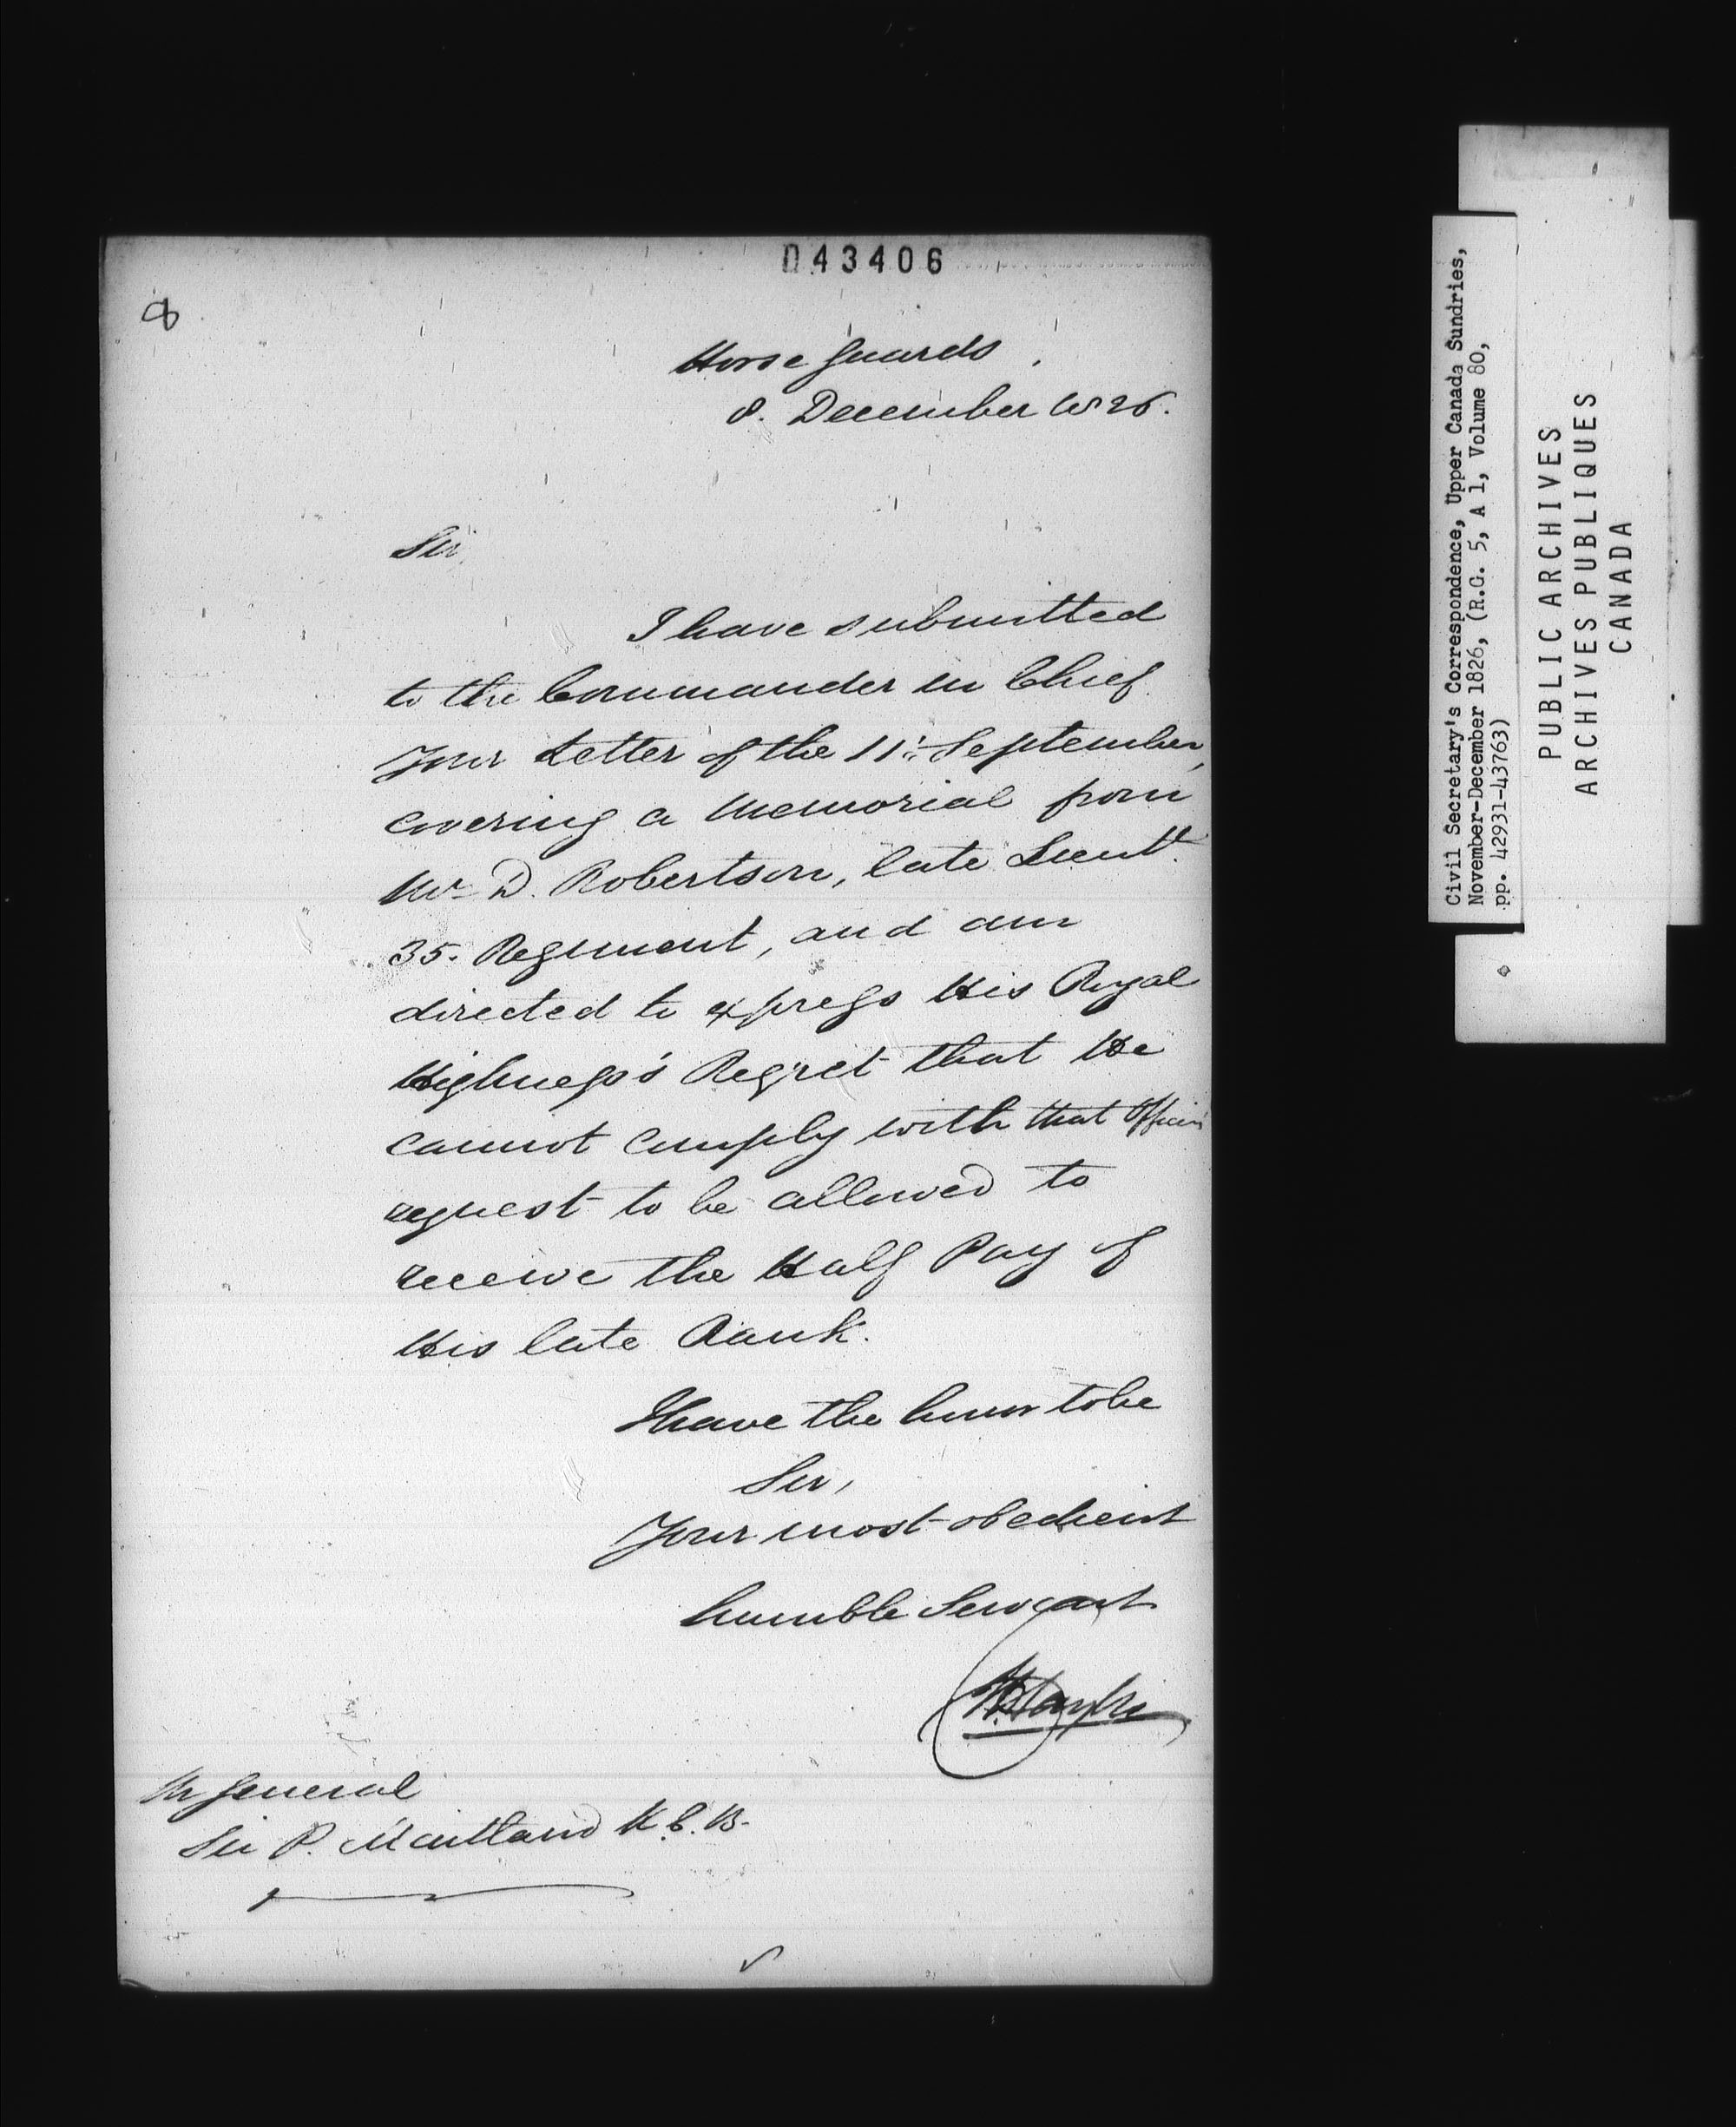 043406
8
Horse Guards
8. December 1826.
Sir,
I have submitted
to the Commander in Chief
Your Letter of the 11th September,
covering a Memorial from
Mr D. Robertson, late Lieutt
35. Regiment, and am
directed to express His Royal
Highness's Regret that He
cannot comply with that Officer's
request to be allowed to
receive the Half Pay of
His late Rank.
I have the honor to be
Sir,
Your most obedient
humble Servant
M General
Sir P. Maitland K.C.B.
Civil Secretary's Correspondence, Upper Canada Sundries,
November-December 1826, (R.G. 5, A 1, Volume 80,
pp. 42931-43763)
PUBLIC ARCHIVES
ARCHIVES PUBLIQUES
CANADA